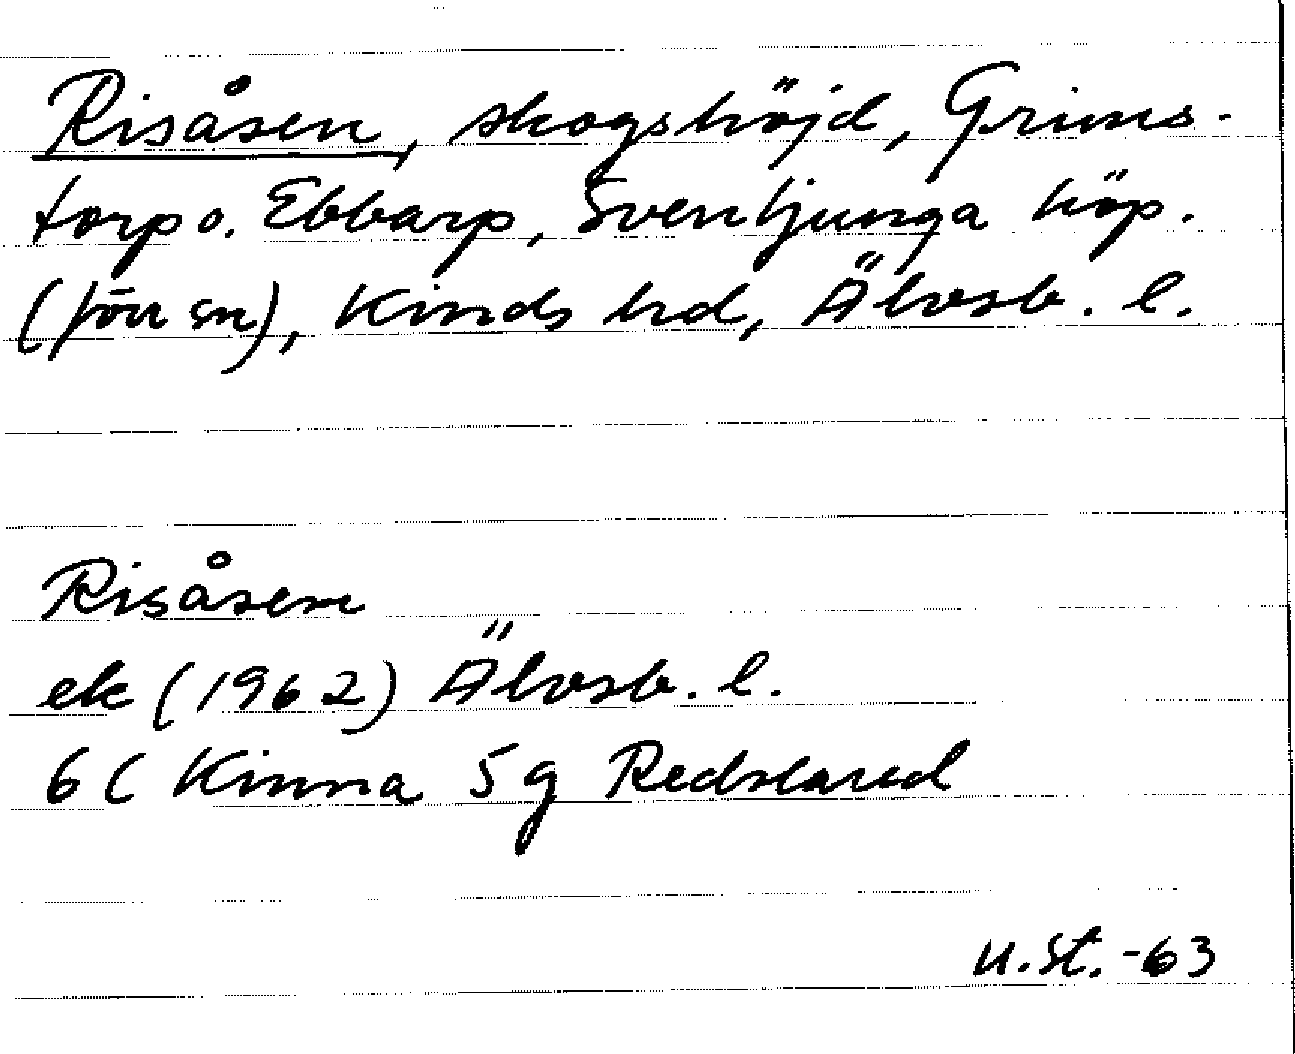 Risåsen, skogshöjd, Grims-
torp o. Ebbarp, Svenljunga köp.
(förr sn), Kinds hd, Älvsb. l.
Risåsen
ek (1962) Älvsb. l.
6C Kinna 5g Redslared
U.St. -63